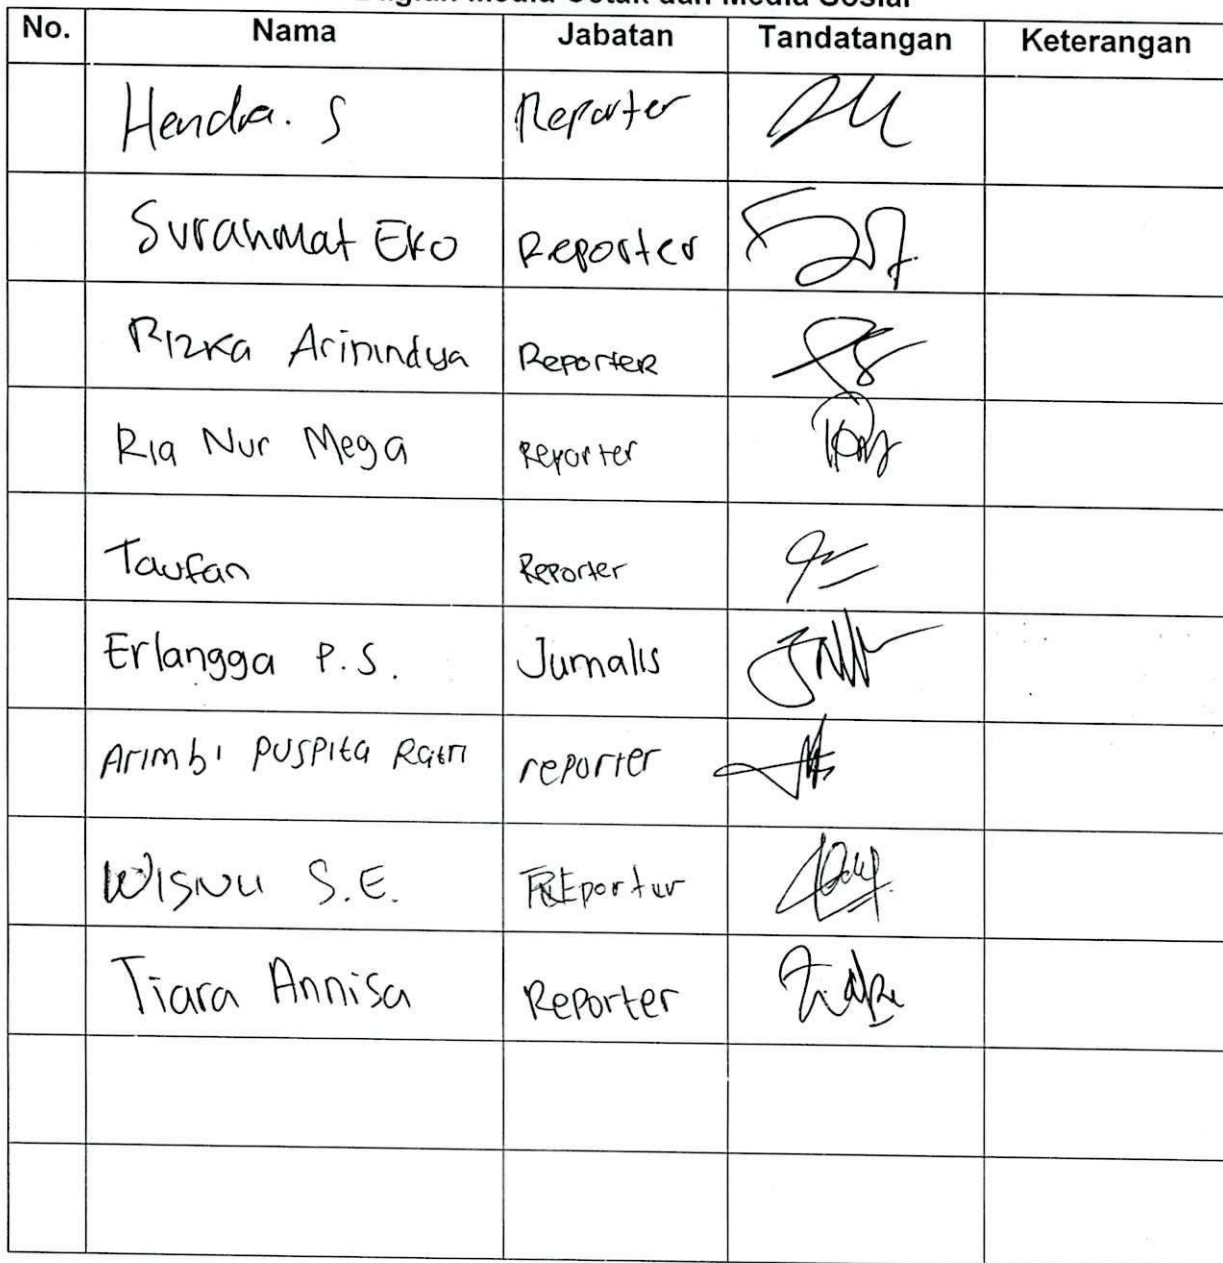 Bagian Media Cetak dan Media Sosial
No. Nama Jabatan Tandatangan Keterangan
Hendra. S Reporter
Surahmat Eko Reporter
Rizka Arinindya Reporter
Ria Nur Mega Reporter
Taufan Reporter
Erlangga P.S. Jurnalis
Arimbi Puspita Ratri reporter
Wisnu S.E. Reporter
Tiara Annisa Reporter